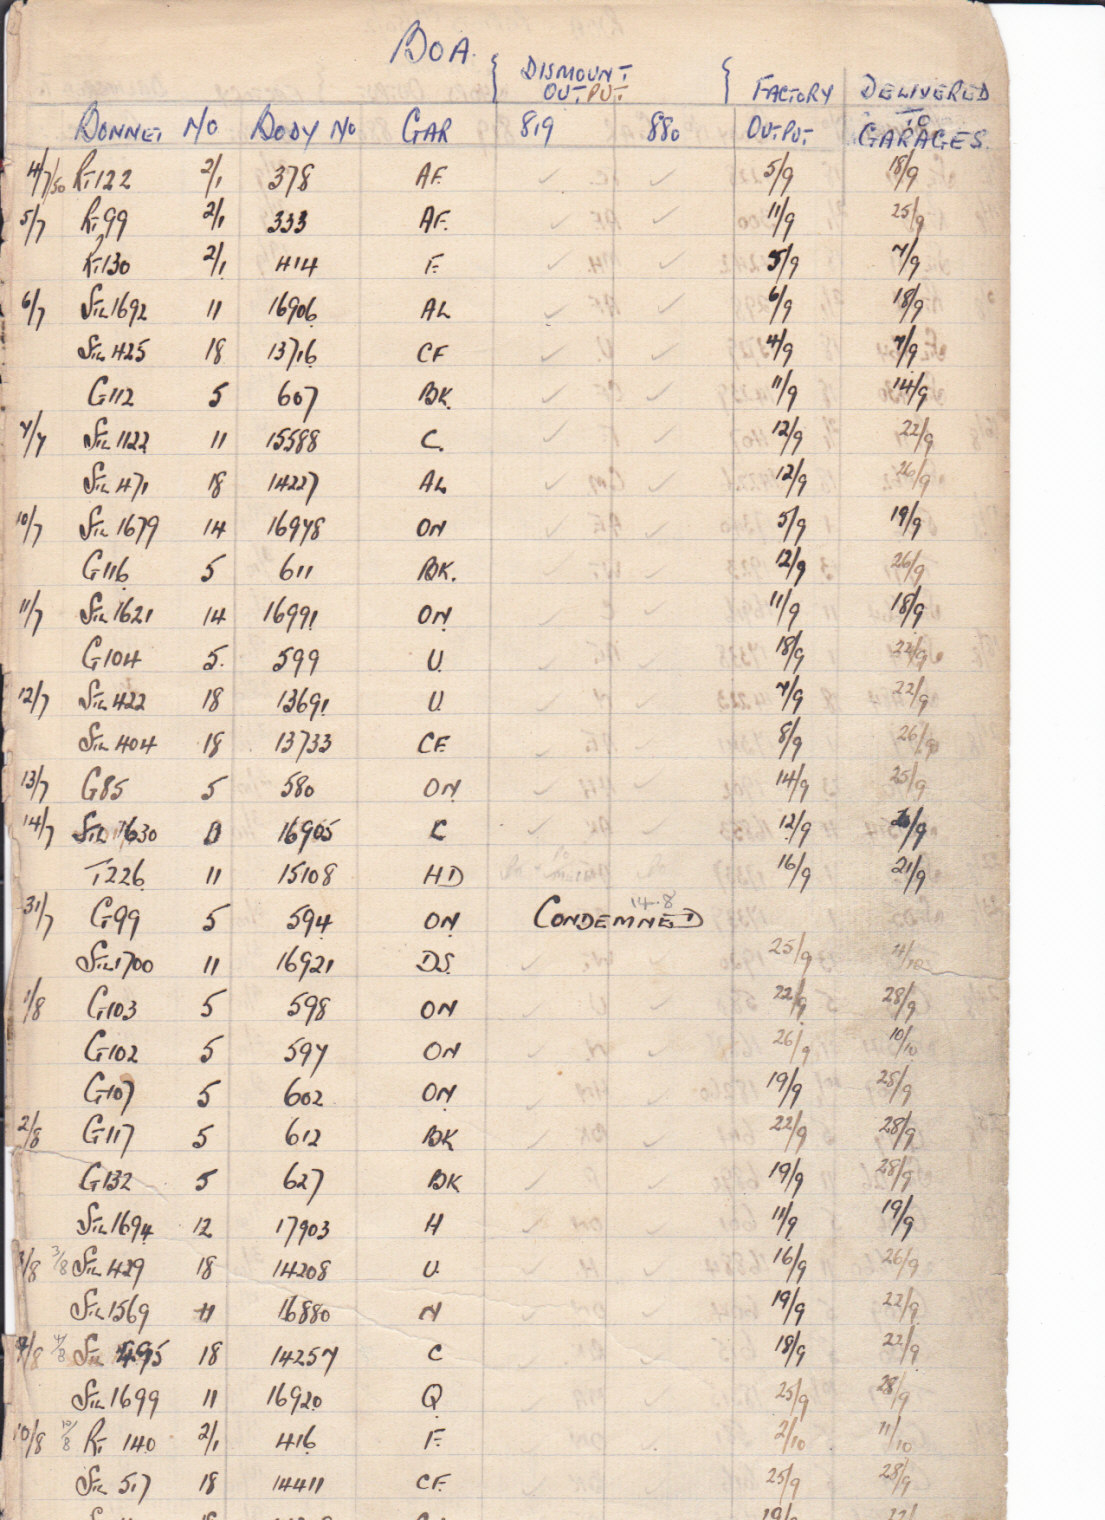 BOA.
DISMOUNT OUTPUT FACTORY DELIVERED
BONNET NO BODY NO GAR 819 880 OUTPUT TO GARAGES.
4/7/50 RT122 2/1 378 AF. ✓ ✓ 5/9 18/9
5/7 RT99 2/1 333 AF. ✓ ✓ 11/9 25/9
RT130 2/1 414 F. ✓ ✓ 5/9 7/9
6/7 STL1692 11 16906 AL ✓ ✓ 6/9 18/9
STL425 18 13716 CF ✓ ✓ 4/9 7/9
G112 5 607 BK. ✓ ✓ 11/9 14/9
7/7 STL1122 11 15588 C. ✓ ✓ 12/9 22/9
STL471 18 14227 AL ✓ ✓ 12/9 26/9
10/7 STL1679 14 16978 ON ✓ ✓ 5/9 19/9
G116 5 611 BK. ✓ ✓ 12/9 26/9
11/7 STL1621 14 16991 ON ✓ ✓ 11/9 18/9
G104 5. 599 U. ✓ ✓ 18/9 22/9
12/7 STL422 18 13691 U. ✓ ✓ 7/9 22/9
STL404 18 13733 CF. ✓ ✓ 8/9 26/9
13/7 G85 5 580 ON ✓ ✓ 14/9 25/9
14/7 STL1630 16905 C ✓ ✓ 12/9
T226 11 15108 HD 16/9 21/9
31/7 G99 5 594 ON CONDEMNED 14.8
STL1700 11 16921 DS. ✓ ✓ 25/9 11/10
1/8 G103 5 598 ON ✓ ✓ 22/9 28/9
G102 5 597 ON ✓ ✓ 26/9 10/10
G107 5 602 ON ✓ ✓ 19/9 28/9
2/8 G117 5 612 BK ✓ ✓ 22/9 28/9
G132 5 627 BK ✓ ✓ 19/9 28/9
STL1694 12 17903 H ✓ ✓ 11/9 19/9
3/8 3/8 STL429 18 14208 U. ✓ ✓ 16/9 26/9
STL1569 11 16880 N ✓ ✓ 19/9 22/9
4/8 4/8 STL495 18 14257 C ✓ ✓ 18/9 22/9
STL1699 11 16920 Q ✓ ✓ 25/9 28/9
10/8 10/8 RT 140 2/1 416 F. ✓ ✓ 2/10 11/10
STL517 18 14411 CF. ✓ ✓ 25/9 28/9